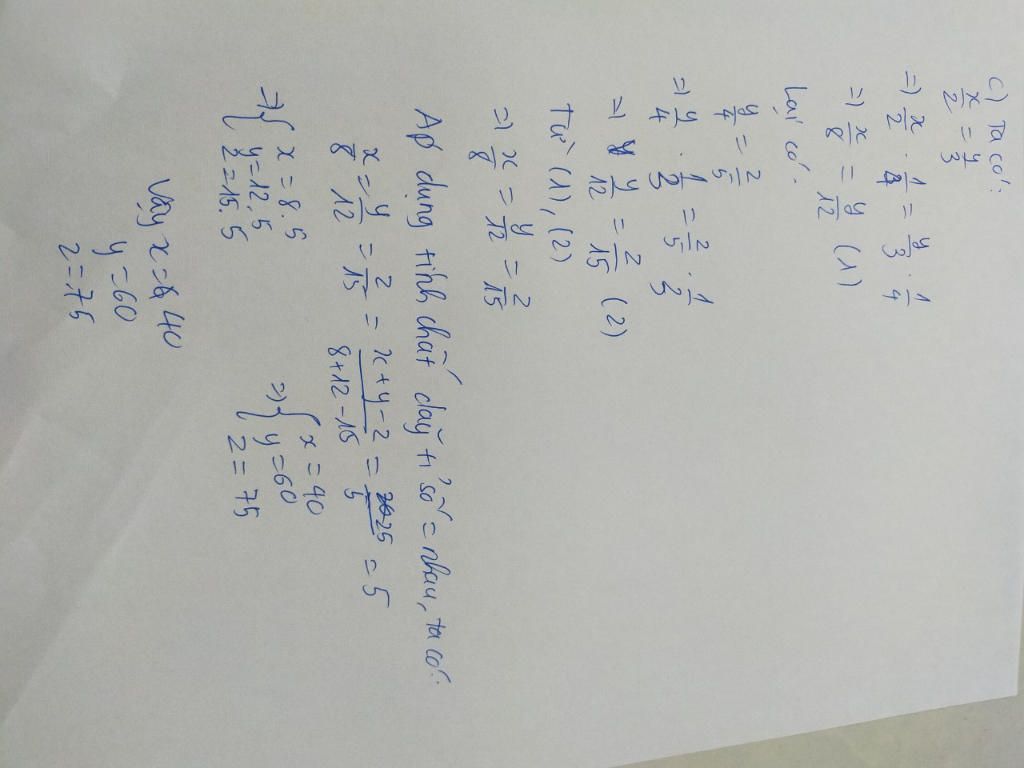 c) Ta có:
x/2 = y/3
=> x/2 . 1/4 = y/3 . 1/4
=> x/8 = y/12 (1)
Lại có:
y/4 = z/5
=> y/4 . 1/3 = z/5 . 1/3
=> y/12 = z/15 (2)
Từ (1), (2)
=> x/8 = y/12 = z/15
Áp dụng tính chất dãy tỉ số = nhau, ta có:
x/8 = y/12 = z/15 = x+y-z/8+12-15 = 25/5 = 5
=> { x = 8.5 y = 12.5 z = 15.5 => { x = 40 y = 60 z = 75
Vậy x = 40
y = 60
z = 75